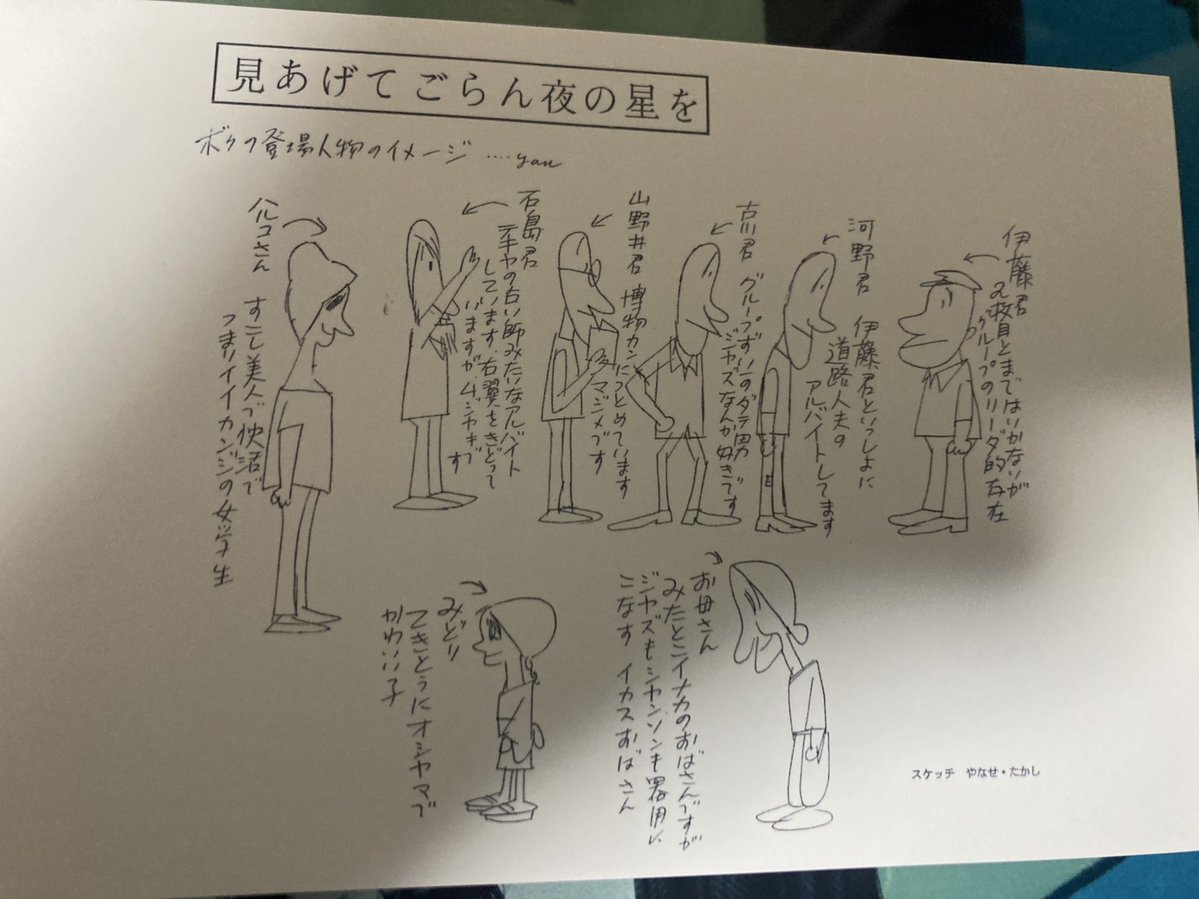 見あげてごらん夜の星を
ボクの登場人物のイメージ ‥‥you
伊藤君
二枚目とまではいかないが
グループのリーダ的存在
河野君 伊藤君といっしょに
道路人夫の
アルバイトしてます
古川君 グループずい一のダテ男
ジャズなんか好きです
山野井君 博物カンにつとめています
マジメです
石島君
テキヤの占い師みたいなアルバイト
しています、右翼をきどって
いますがムジャキで
す
ハルコさん すこし美人で快活で
つまりイイカンジの女学生
お母さん
みたとこイナカのおばさんですが
ジャズもシャンソンも器用に
こなす イカスおばさん
みどり
てきとうにオシャマで
かわいい子
スケッチ やなせ・たかし